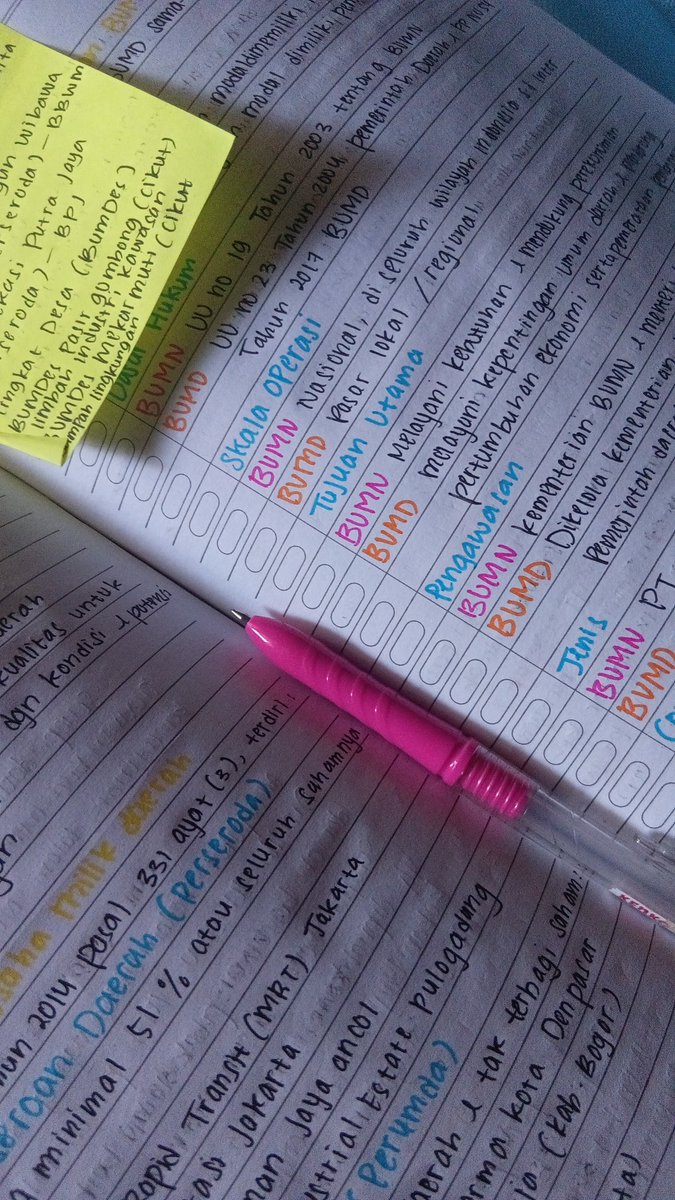 gan Wibawa
Perseroda) - BBWM
okasi Putra Jaya
seroda) - BPJ
ingkat Desa (BUMDes)
BUMDes Pasir gombong (Cikut)
limbah industri kawasan
BUMDes Mekarmukti (Cikut
sampah lingkungan
BUMD sama
modal dimiliki pem
Dasar Hukum
BUMN UU no 19 Tahun 2003 tentang BUMN
BUMD UU no 23 Tahun 2004 pemerintah Daerah & PP no 54
Tahun 2017 BUMD
Skala Operasi
BUMN Nasional, di seluruh wilayah Indonesia & inter
BUMD pasar lokal / regional
Tujuan Utama
BUMN Melayani kebutuhan & mendukung perekonomian
BUMD melayani kepentingan umum daerah &
pertumbuhan ekonomi serta pemerataan
Pengawasan
BUMN Kementerian BUMN &
BUMD Dikelola kementerian
pemerintah daerah
Jenis
BUMN PT
BUMD
daerah
kualitas untuk
dgn kondisi & potensi
usaha milik daerah
hun 2014 pasal 331 ayat (3), terdiri:
eroan Daerah (Perseroda)
minimal 51 % atau seluruh sahamnya
ROPW Transit (MRT) Jakarta
tasi Jakarta
man Jaya ancol
ustrial Estate pulogadang
Perumda)
erah & tak terbagi saham:
arma kota Denpasar
ja (Kab. Bogor)
ta)